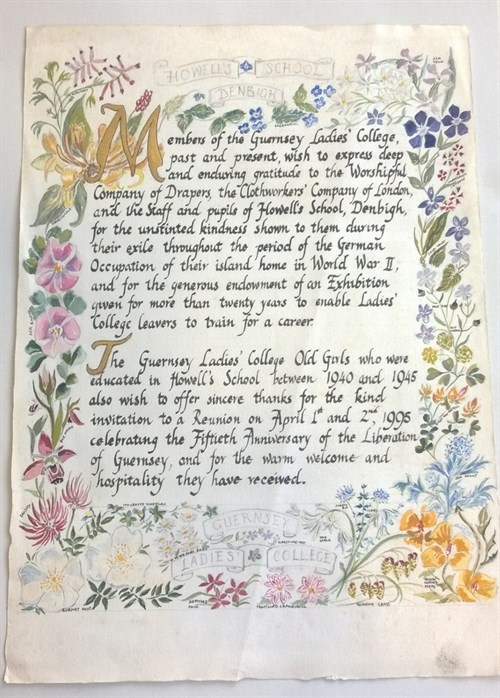 HOWELL'S SCHOOL
DENBIGH
Members of the Guernsey Ladies' College,
past and present, wish to express deep
and enduring gratitude to the Worshipful
Company of Drapers, the Clothworkers' Company of London,
and the Staff and pupils of Howell's School, Denbigh,
for the unstinted kindness shown to them during
their exile throughout the period of the German
Occupation of their island home in World War II,
and for the generous endowment of an Exhibition
given for more than twenty years to enable Ladies'
College leavers to train for a career.
The Guernsey Ladies' College Old Girls who were
educated in Howell's School between 1940 and 1945
also wish to offer sincere thanks for the kind
invitation to a Reunion on April 1st and 2nd, 1995
celebrating the Fiftieth Anniversary of the Liberation
of Guernsey, and for the warm welcome and
hospitality they have received.
GUERNSEY
LADIES' COLLEGE
BURNET ROSE